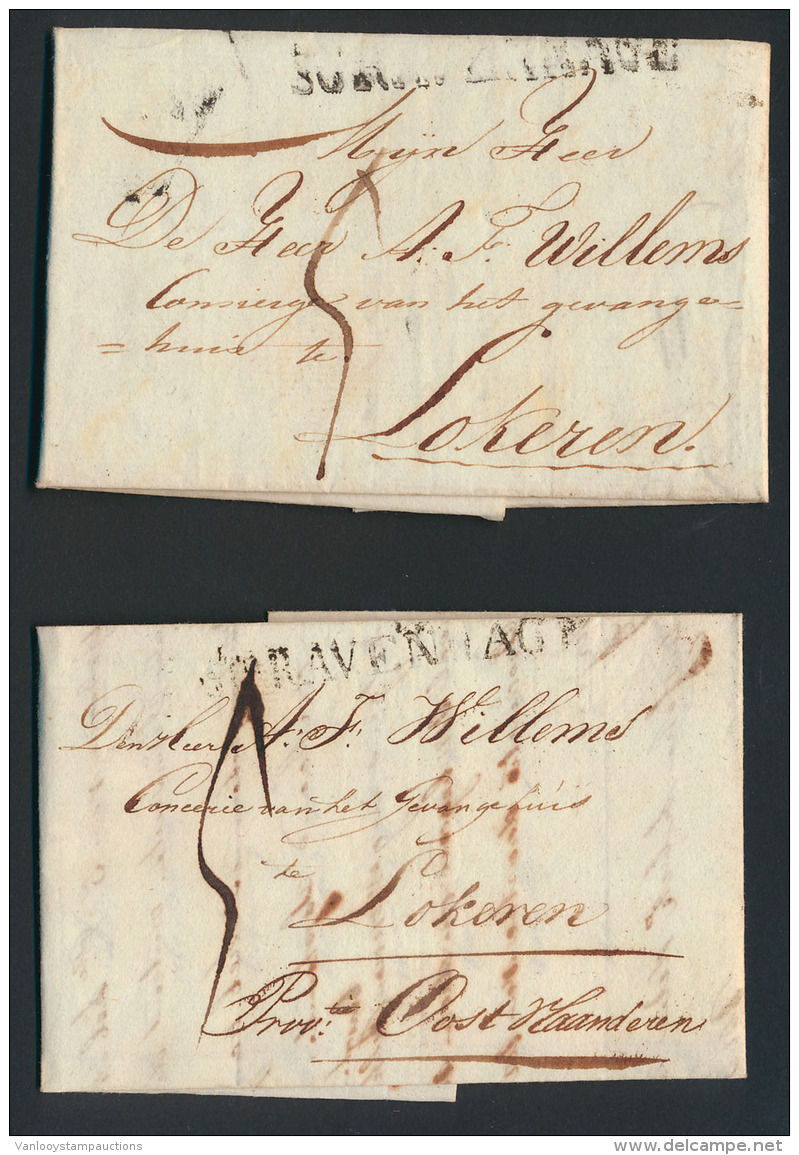 Mÿn Heer
De Heer A: F. Willems
Concierge van het gevange=
=huis te
Lokeren.
'SGRAVENHAGE
Den Heer A: F. Willems
Concerie van het Gevangehuis
te
Lokeren
Prov:tie Oost Vlaanderen
Vanlooystampauctions
www.delcampe.net